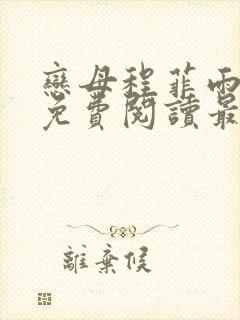 戀母程菲雨
免費閱讀最
離棄候